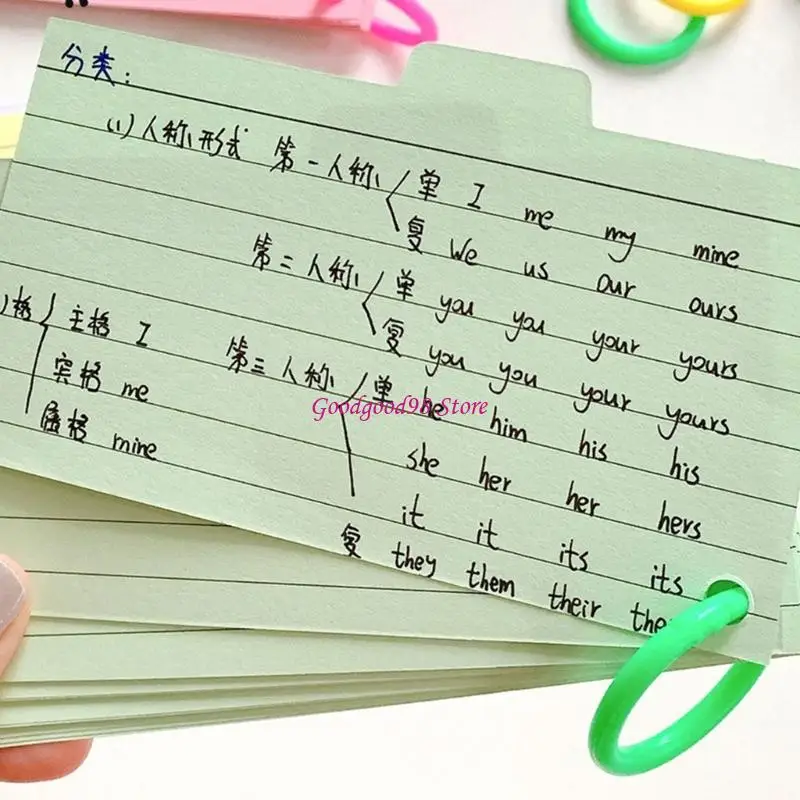 分类:
(1) 人称形式 第一人称 单 I me my mine
复 We us our ours
第二人称 单 you you your yours
复 you you your yours
格 主格 I
宾格 me
属格 mine
第三人称 单 he him his his
she her her hers
it it its its
复 they them their the
Goodgood98 Store